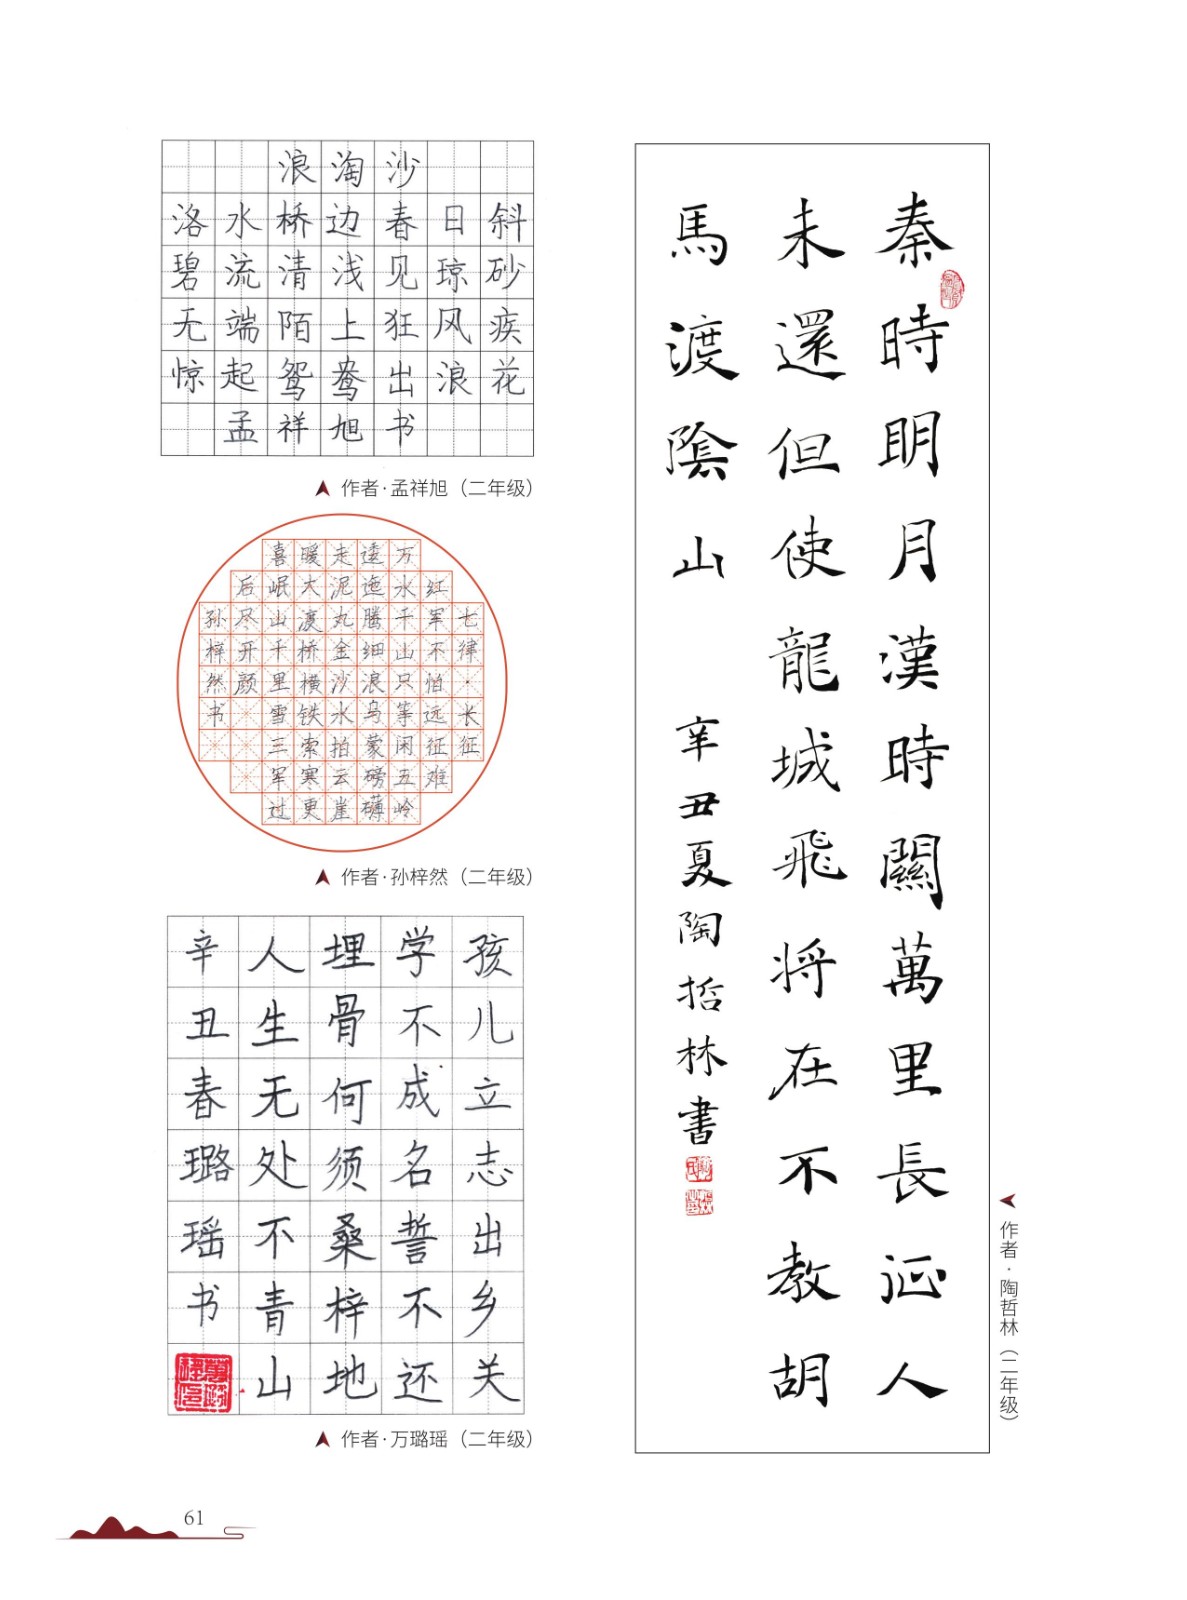 浪淘沙
洛水桥边春日斜
碧流清浅见琼砂
无端陌上狂风疾
惊起鸳鸯出浪花
孟祥旭书
作者·孟祥旭（二年级）
七律·长征
红军不怕远征难
万水千山只等闲五岭
逶迤腾细浪乌蒙磅礴
走泥丸金沙水拍云崖
暖大渡桥横铁索寒更
喜岷山千里雪三军过
后尽开颜
孙梓然书
作者·孙梓然（二年级）
孩儿立志出乡关
学不成名誓不还
埋骨何须桑梓地
人生无处不青山
辛丑春璐瑶书
作者·万璐瑶（二年级）
秦時眀月漢時關萬里長征人
未還但使龍城飛将在不教胡
馬渡陰山
辛丑夏陶哲林書
作者·陶哲林（二年级）
61